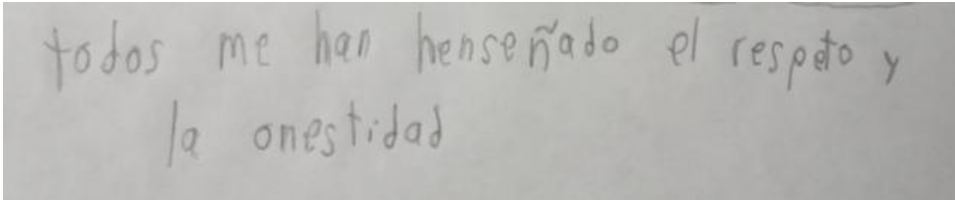 todos me han henseñado el respeto y
la onestidad